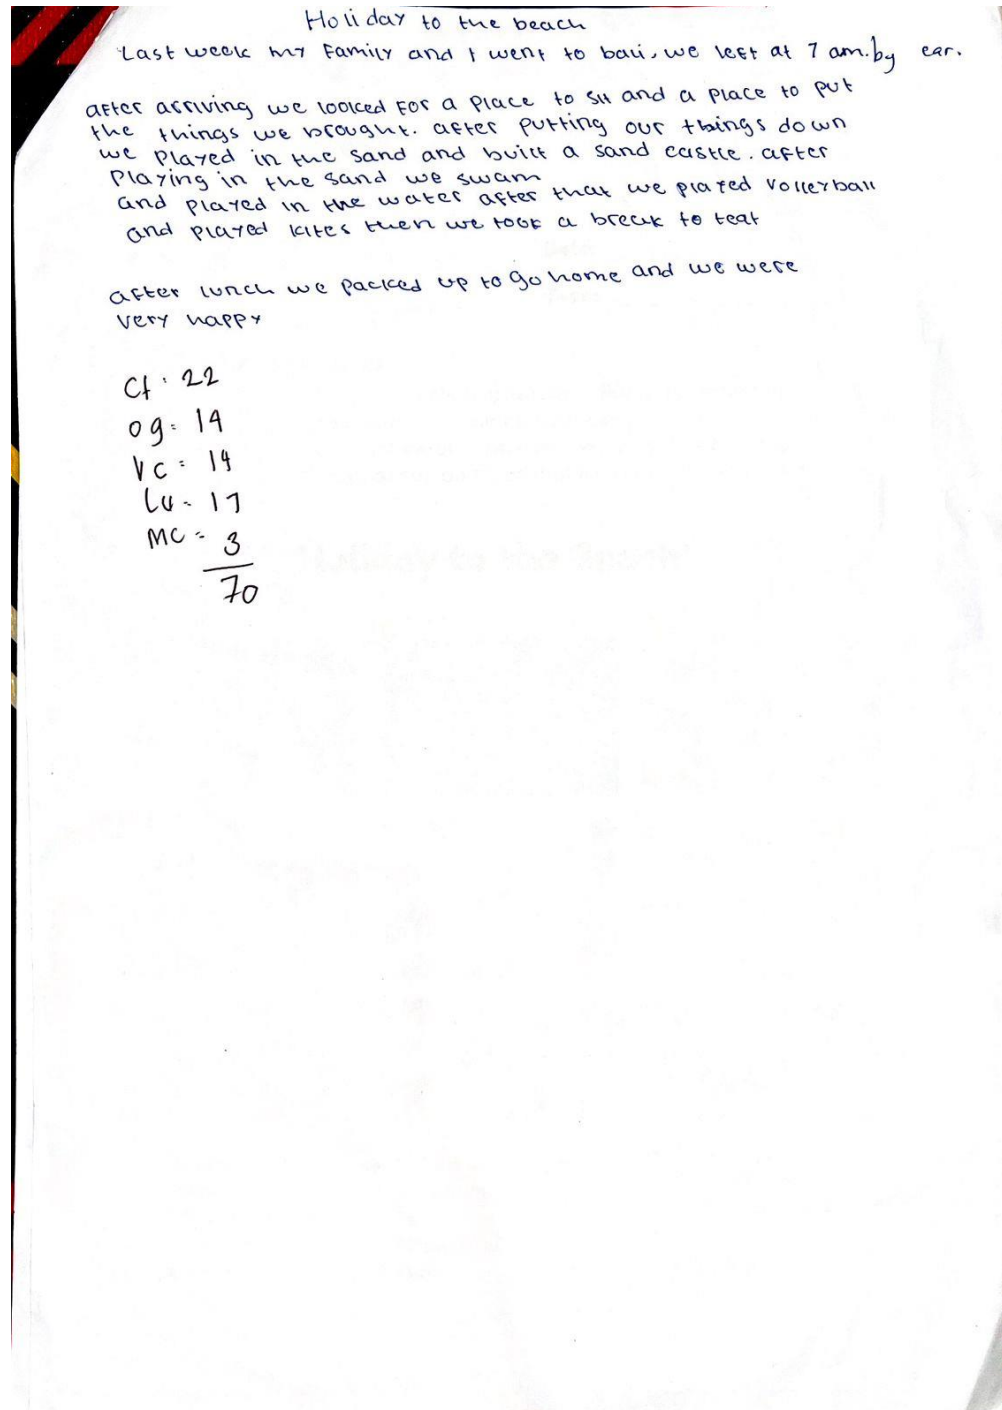 Holiday to the beach
Last week my Family and I went to bali, we left at 7 am. by car.
after arriving we looked For a place to sit and a place to put
the things we brought. after putting our things down
we played in the sand and built a sand castle. after
playing in the sand we swam
and played in the water after that we played volleyball
and played kites then we took a break to teat
after lunch we packed up to go home and we were
very happy
Ct : 22
og : 14
Vc : 14
Lu - 17
MC = 3
70